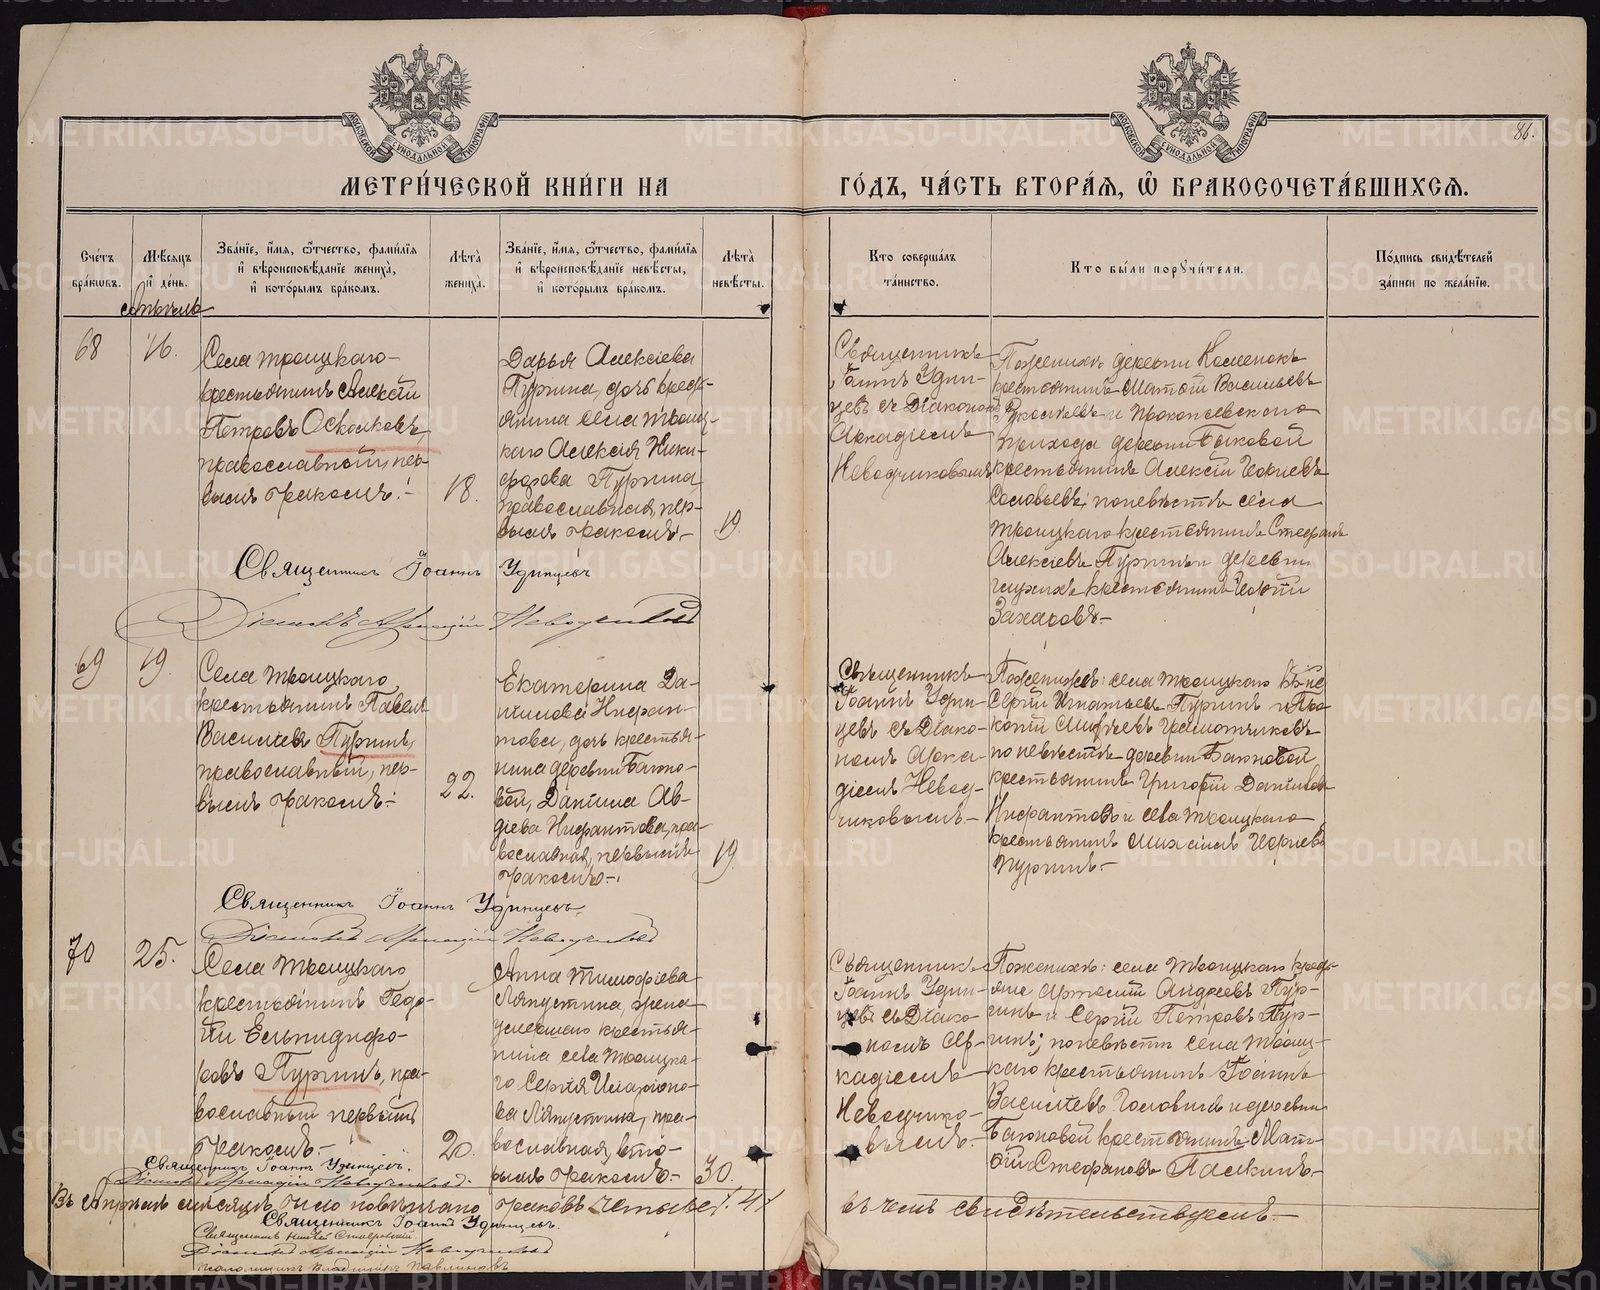 МОСКОВСКОЙ СИНОДАЛЬНОЙ ТИПОГРАФІИ
МОСКОВСКОЙ СИНОДАЛЬНОЙ ТИПОГРАФІИ
86.
МЕТРИ́ЧЕСКОЙ КНИ́ГИ НА
ГО́ДЪ, ЧА́СТЬ ВТОРА́Я, Ѡ БРАКОСОЧЕТА́ВШИХСЯ.
Сче́тъ бра́кѡвъ.
Мѣ́сяцъ и҆ де́нь.
Зва́нїе, и҆́мя, ѻ҆́тчество, фами́лїя
и҆ вѣроисповѣ́данїе жениха̀,
и҆ кото́рымъ бра́комъ.
Лѣ́та жениха̀.
Зва́нїе, и҆́мя, ѻ҆́тчество, фами́лїя
и҆ вѣроисповѣ́данїе невѣ́сты,
и҆ кото́рымъ бра́комъ.
Лѣ́та невѣ́сты.
Кто соверша́лъ
та́инство.
Кто бы́ли порꙋчи́тели.
По́дпись свидѣ́телей
за́писи по жела́нїю.
Апрѣль
68
16.
Села Троицкаго
крестьянинъ Алексій
Петровъ Осколковъ,
православный, пер-
вымъ бракомъ.
18.
Дарья Алексіева
Пургина, дочь крест-
янина села Троиц-
каго Алексія Ники-
форова Пургина,
православная, пер-
вымъ бракомъ.
19.
Священникъ
Іоаннъ Удин-
цевъ съ Діакономъ
Аркадіемъ
Неводчиковымъ
По женихѣ деревни
крестьянинъ Матѳій Васильевъ
и Прокопьевского
прихода деревни Быковой
крестьянинъ Алексій
Соловьевъ; по невѣстѣ села
Троицкаго крестьянинъ Стефанъ
Алексіевъ Пургинъ и деревни
крестьянинъ
Захаровъ.
Священникъ Іоаннъ Удинцевъ
Діаконъ Аркадій Неводчиковъ
69
19.
Села Троицкаго
крестьянинъ Павелъ
Василіевъ Пургинъ,
православный, пер-
вымъ бракомъ.
22.
Екатерина Да-
ніилова Нифан-
това, дочь крестья-
нина деревни Баино-
вой, Даніила Ав-
діева Нифантова, пра-
вославная, первымъ
бракомъ.
19.
Священникъ
Іоаннъ Удин-
цевъ съ Діако-
номъ Арка-
діемъ Невод-
чиковымъ.
По женихѣ: села Троицкаго
Сергій Игнатьевъ Пургинъ и Про-
копій
по невѣстѣ деревни Баиновой
крестьянинъ Григорій Даніиловъ
Нифантовъ и села Троицкаго
крестьянинъ Михаилъ
Пургинъ.
Священникъ Іоаннъ Удинцевъ.
Діаконъ Аркадій Неводчиковъ
70
25.
Села Троицкаго
крестьянинъ Гедо-
Елпидифо-
ровъ Пургинъ, пра-
вославный первымъ
бракомъ.
20.
Анна Тимофіева
Ляпустина, жена
умершаго крестья-
нина села Троицка-
го Сергія Иларіоно-
ва Ляпустина, пра-
вославная, вто-
рымъ бракомъ.
30.
Священникъ
Іоаннъ Удин-
цевъ съ Діако-
номъ Ар-
кадіемъ
Неводчико-
вымъ.
По женихѣ: села Троицкаго кресть-
яне Артемій Андреевъ Пур-
гинъ и Сергій Петровъ Пур-
гинъ; по невѣстѣ села Троиц-
каго крестьянинъ Іоаннъ
Василіевъ Головинъ и деревни
Баиновой крестьянинъ Мат-
ѳій Стефановъ Палкинъ.
Священникъ Іоаннъ Удинцевъ.
Діаконъ Аркадій Неводчиковъ.
Въ Апрѣлѣ мѣсяцѣ было повѣнчано браковъ четыре. 4
въ чемъ свидѣтельствуемъ.
Священникъ Іоаннъ Удинцевъ.
Священникъ Ставровскій.
Діаконъ Аркадій Неводчиковъ
псаломщикъ Владиміръ Павлиновъ
METRIKI.GASO-URAL.RU